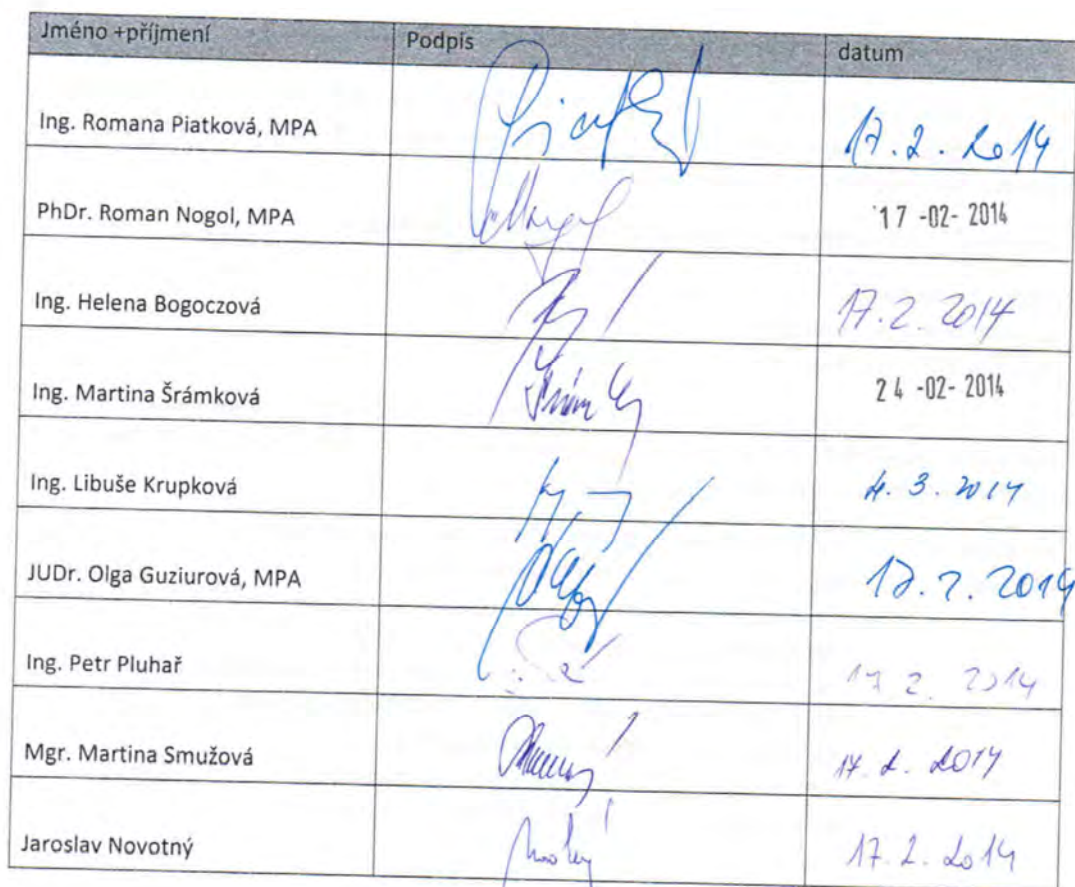 Jméno +příjmení Podpis datum
Ing. Romana Piatková, MPA 17.2.2014
PhDr. Roman Nogol, MPA 17 -02- 2014
Ing. Helena Bogoczová 17.2.2014
Ing. Martina Šrámková 24 -02- 2014
Ing. Libuše Krupková 4.3.2014
JUDr. Olga Guziurová, MPA 17.2.2014
Ing. Petr Pluhař 17 2 2014
Mgr. Martina Smužová 17.2.2014
Jaroslav Novotný 17.2.2014